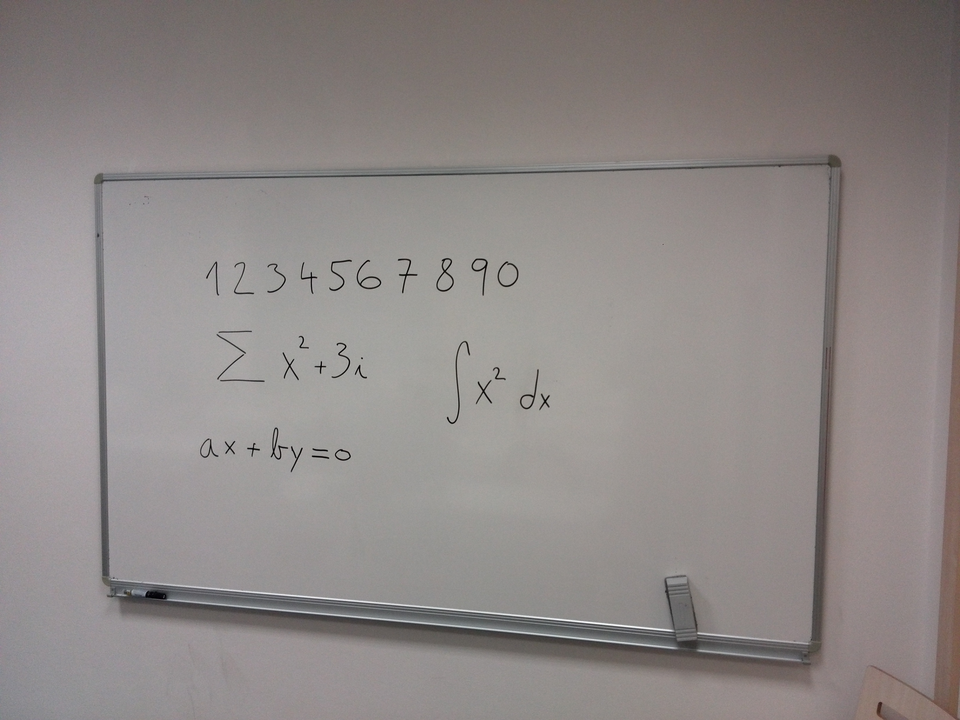 1234567890
∑ x² + 3i
∫ x² dx
ax + by = 0